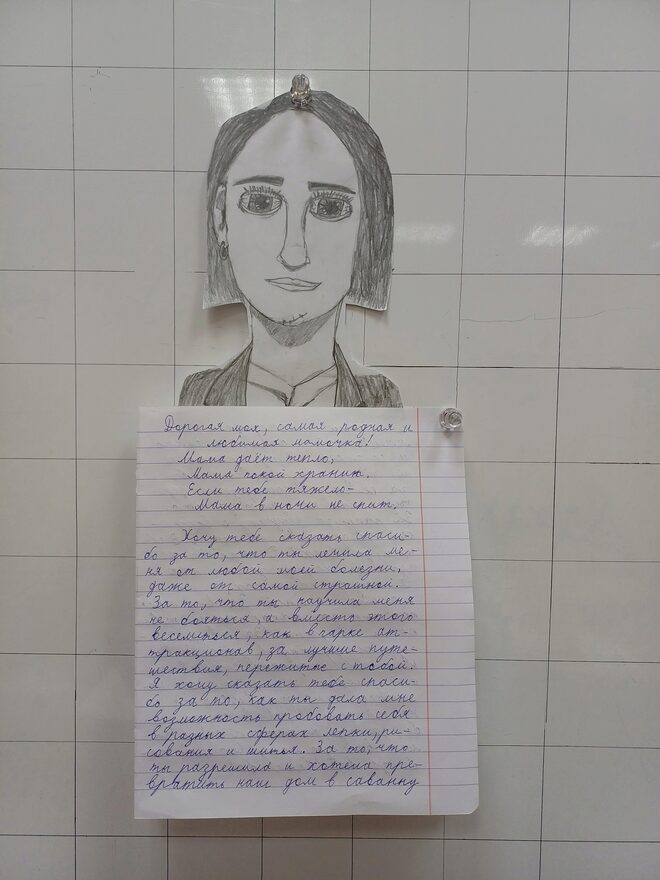 Дорогая моя, самая родная и
любимая мамочка!
Мама даёт тепло,
Мама покой хранит.
Если тебе тяжело-
Мама в ночи не спит.
Хочу тебе сказать спаси-
бо за то, что ты лечила ме-
ня от любой моей болезни,
даже от самой страшной.
За то, что ты научила меня
не бояться, а вместо этого
веселиться, как в парке ат-
тракционов, за лучшие путе-
шествия, пережитые с тобой.
Я хочу сказать тебе спаси-
бо за то, как ты дала мне
возможность пробовать себя
в разных сферах лепки, ри-
сования и шитья. За то, что
ты разрешила и хотела пре-
вратить наш дом в саванну